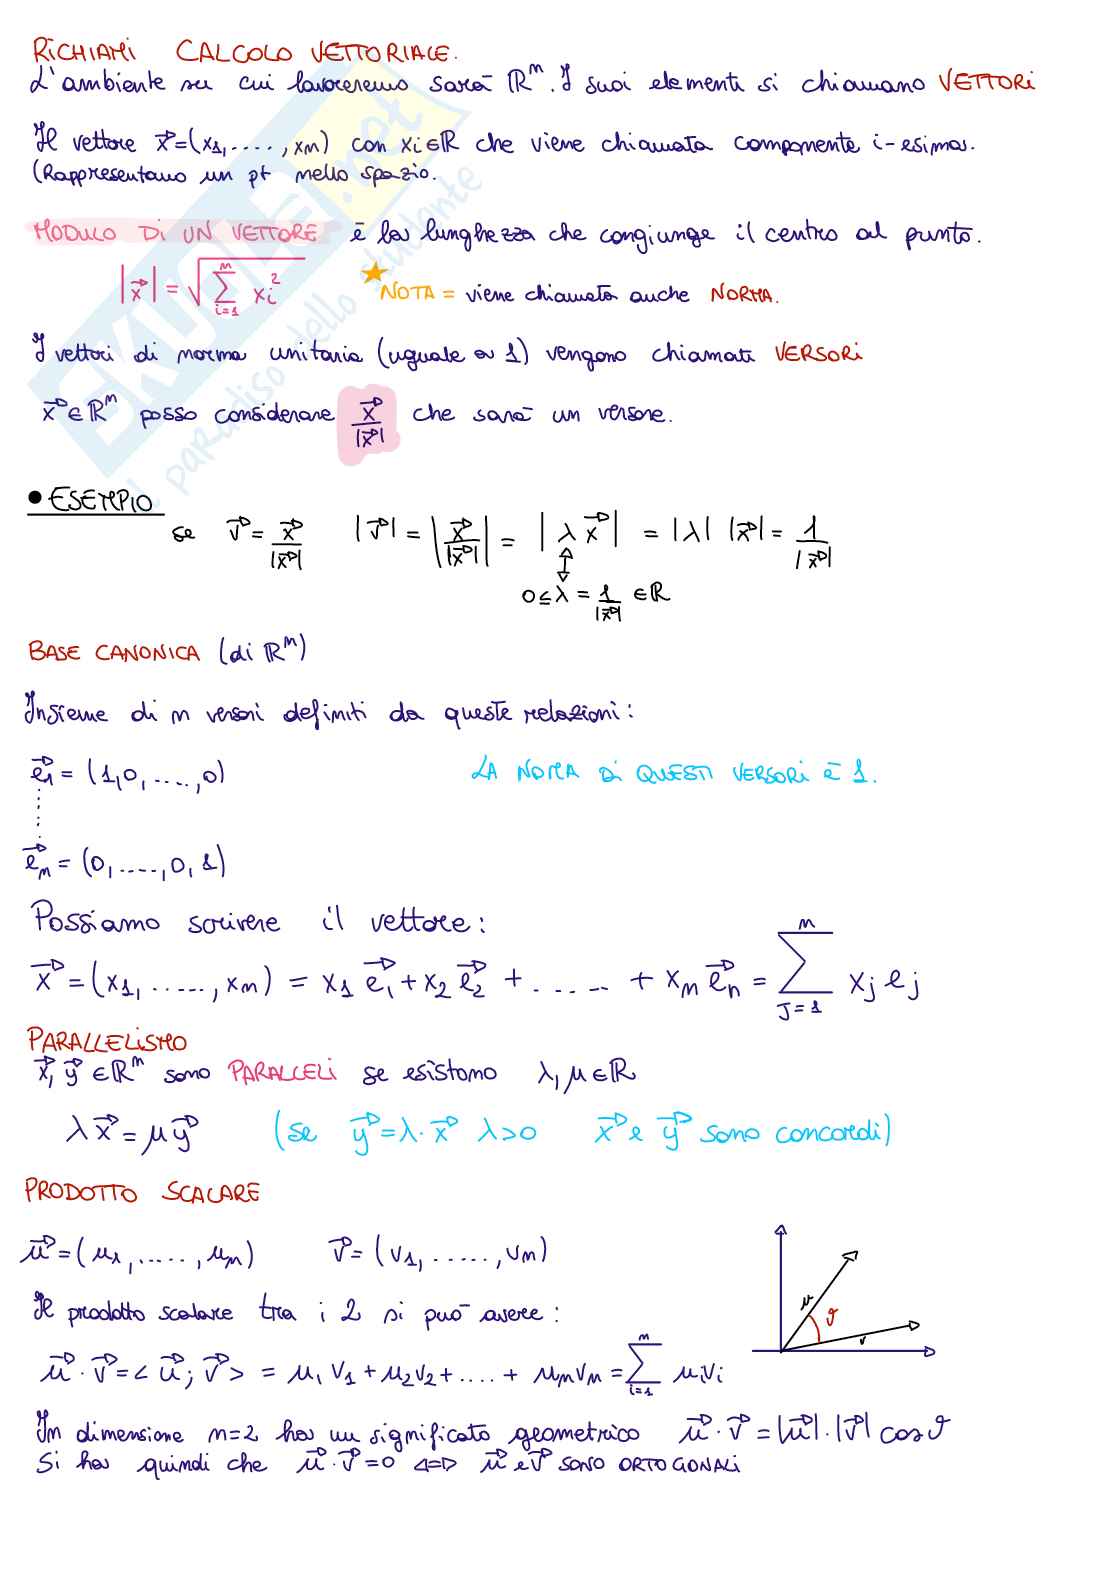 RICHIAMI CALCOLO VETTORIALE.
L'ambiente su cui lavoreremo sarà ℝⁿ. I suoi elementi si chiamano VETTORI
Il vettore x⃗=(x₁,....,xₙ) con xᵢ∈ℝ che viene chiamata componente i-esima.
(Rappresentano un pt nello spazio.
MODULO DI UN VETTORE è la lunghezza che congiunge il centro al punto.
|x⃗| = √(∑ᵢ₌₁ⁿ xᵢ²)
★ NOTA = viene chiamata anche NORMA.
I vettori di norma unitaria (uguale a 1) vengono chiamati VERSORI
x⃗∈ℝⁿ posso considerare x⃗/|x⃗| che sarà un versore.
• ESEMPIO
se v⃗ = x⃗/|x⃗| |v⃗| = |x⃗/|x⃗|| = |λx⃗| = |λ| |x⃗| = 1/|x⃗|
0≤λ = 1/|x⃗| ∈ℝ
BASE CANONICA (di ℝⁿ)
Insieme di n versori definiti da queste relazioni:
e⃗₁ = (1,0,....,0) LA NORMA DI QUESTI VERSORI È 1.
e⃗ₙ = (0,....,0,1)
Possiamo scrivere il vettore:
x⃗ = (x₁,.....,xₙ) = x₁e⃗₁ + x₂e⃗₂ + ..... + xₙe⃗ₙ = ∑ⱼ₌₁ⁿ xⱼeⱼ
PARALLELISMO
x⃗, y⃗ ∈ℝⁿ sono PARALLELI se esistono λ, μ∈ℝ
λx⃗ = μy⃗ (se y⃗ = λ·x⃗ λ>0 x⃗ e y⃗ sono concordi)
PRODOTTO SCALARE
u⃗ = (u₁,.....,uₙ) v⃗ = (v₁,.....,vₙ)
Il prodotto scalare tra i 2 si può avere:
u⃗·v⃗ = <u⃗; v⃗> = u₁v₁ + u₂v₂ + .... + uₙvₙ = ∑ᵢ₌₁ⁿ uᵢvᵢ
u
ϑ
v
In dimensione n=2 ha un significato geometrico u⃗·v⃗ = |u⃗|·|v⃗| cosϑ
Si ha quindi che u⃗·v⃗ = 0 ⇔ u⃗ e v⃗ SONO ORTOGONALI
SKUOLA.net
il paradiso dello studente